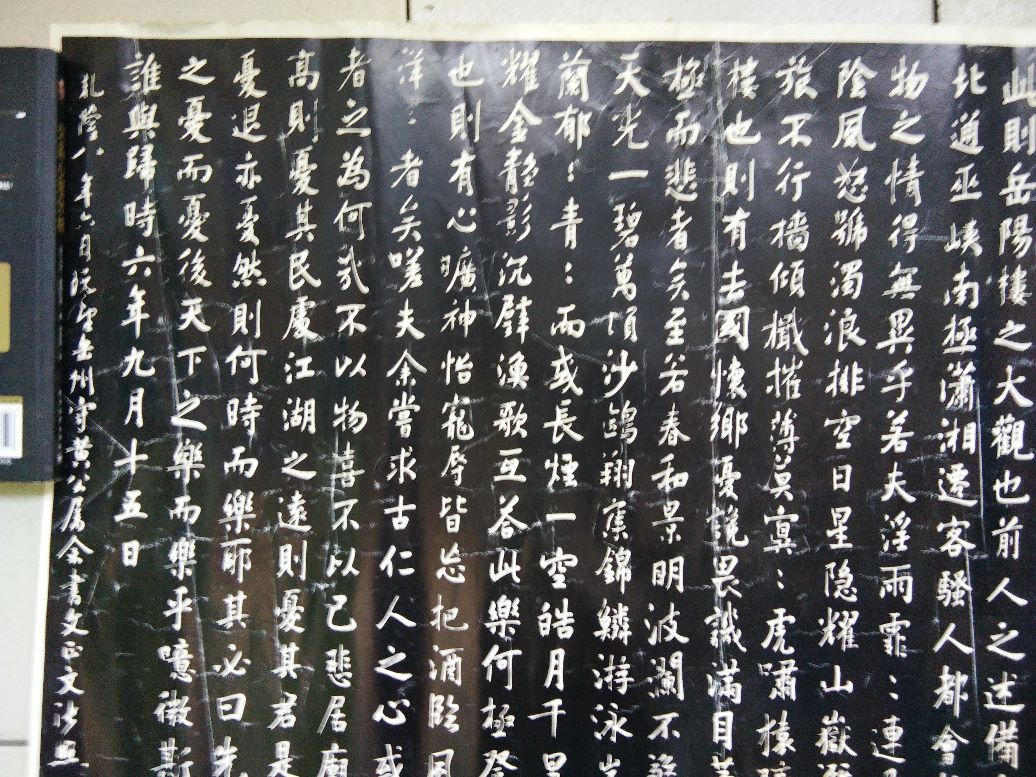 此則岳陽樓之大觀也前人之述備
北通巫峽南極瀟湘遷客騷人都會
物之情得無異乎若夫淫雨霏:連
陰風怒號濁浪排空日星隱耀山嶽
旅不行檣傾檝摧薄莫冥:虎嘯猿
樓也則有去國懷鄉憂讒畏譏滿目
極而悲者矣至若春和景明波瀾不
天光一碧萬頃沙鷗翔集錦鱗游泳
蘭郁:青:而或長煙一空皓月千里
耀金靜影沉璧漁歌互答此樂何極登
也則有心曠神怡寵辱皆忘把酒臨風
洋:者矣嗟夫余嘗求古仁人之心或
者之為何哉不以物喜不以己悲居廟
高則憂其民處江湖之遠則憂其君是
憂退亦憂然則何時而樂耶其必曰先
之憂而憂後天下之樂而樂乎噫微斯
誰與歸時六年九月十五日
乾隆八年六月既望岳州守黃公屬余書文正文張照